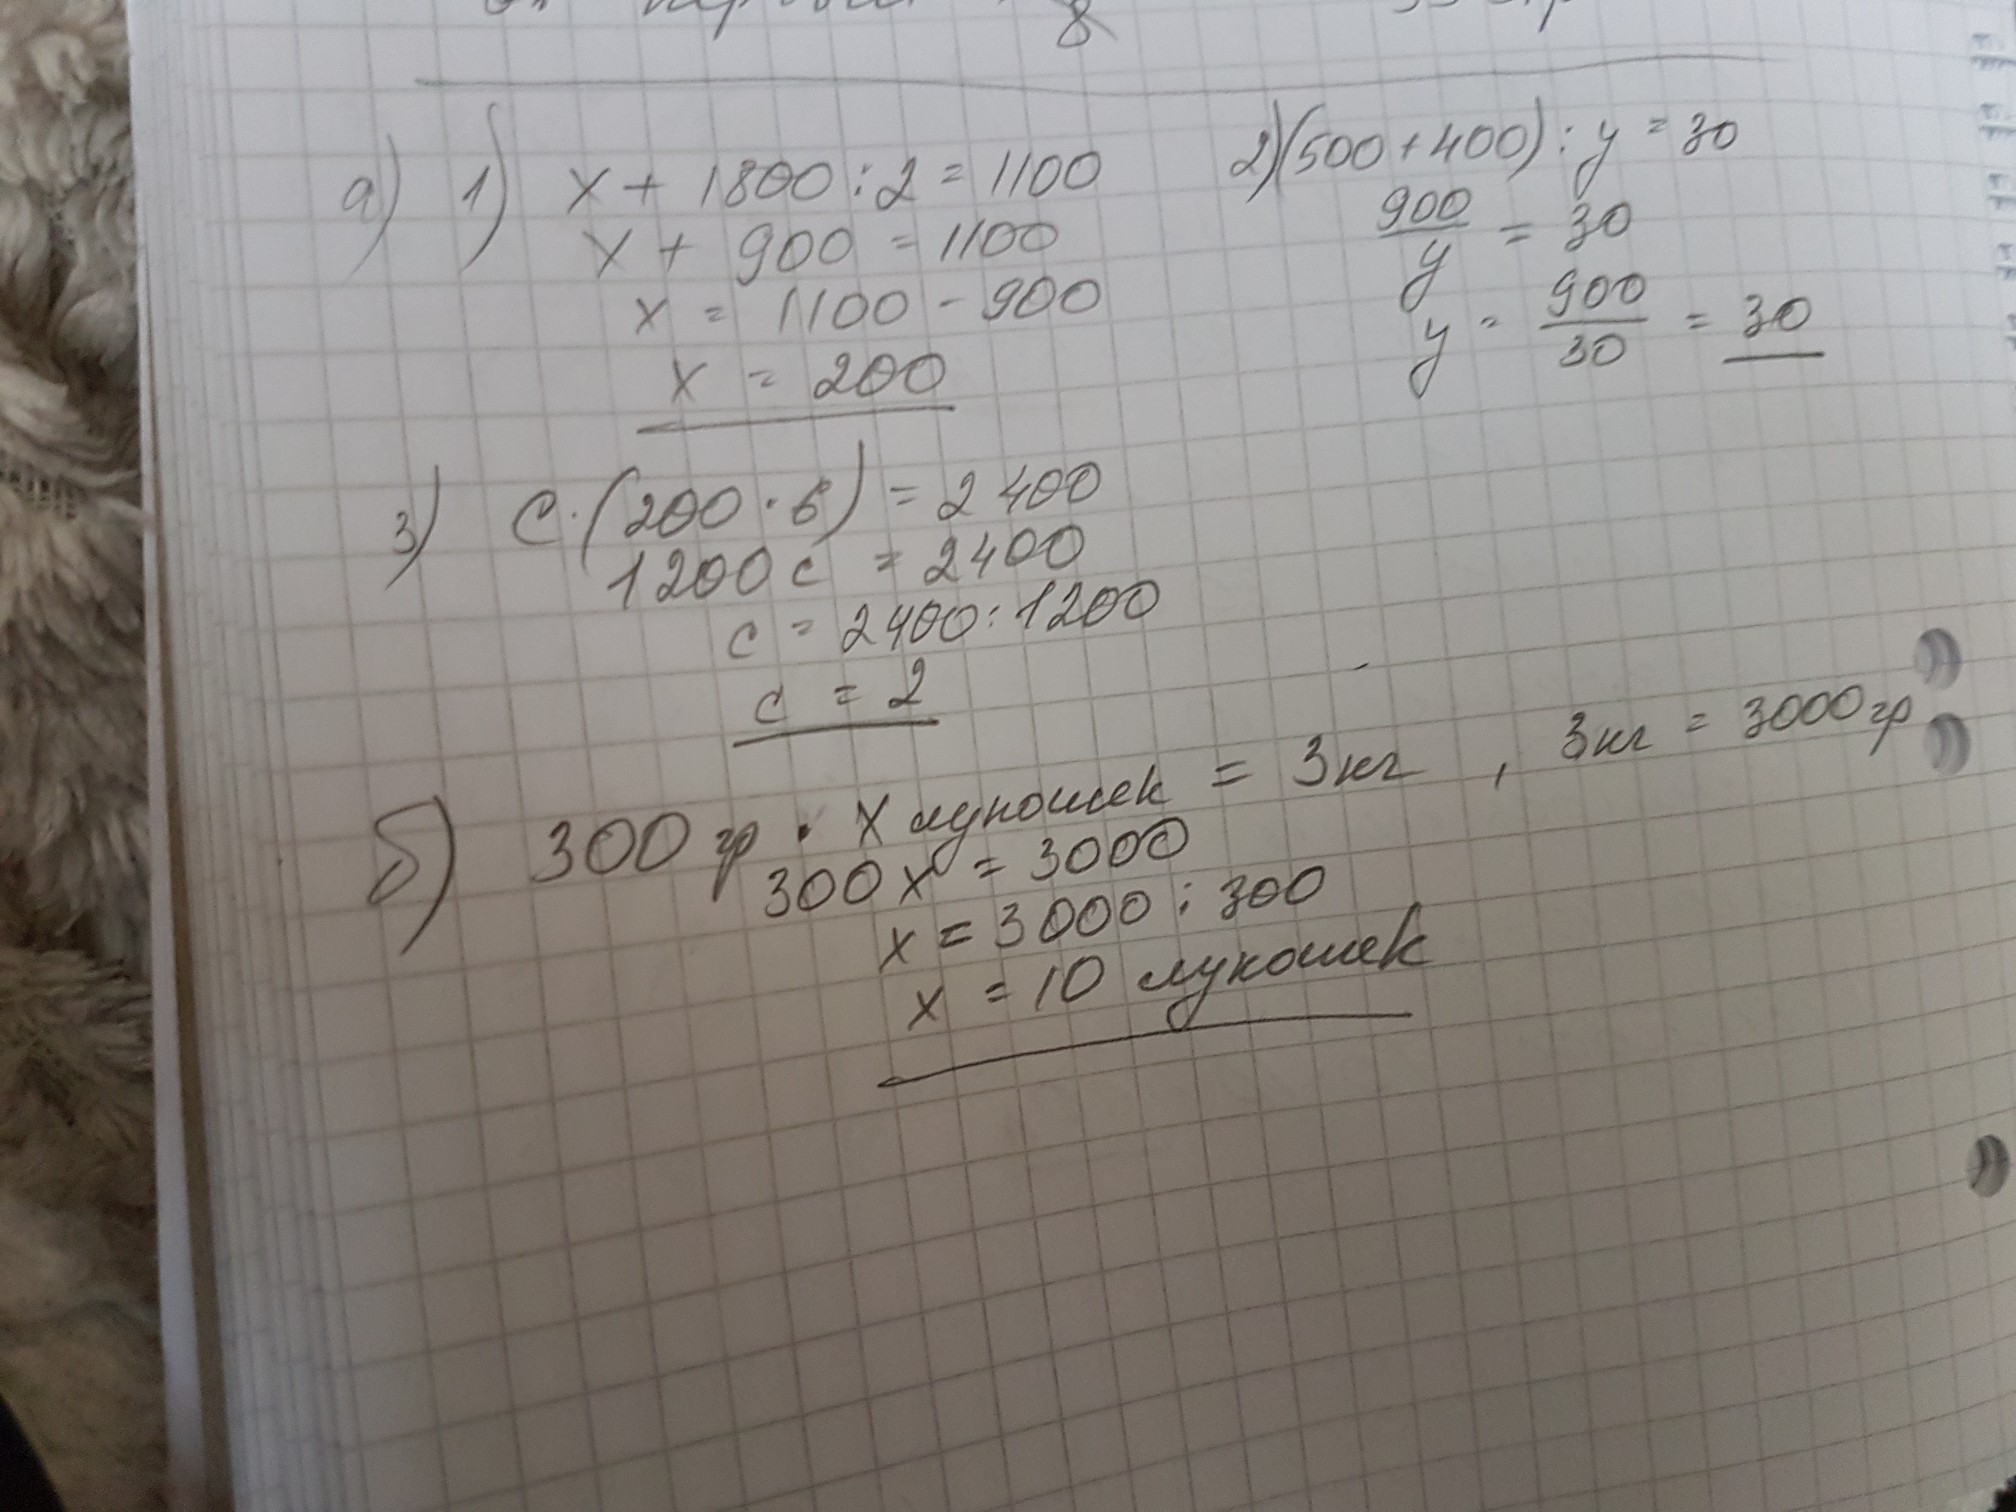 8
а) 1) x + 1800 : 2 = 1100
x + 900 = 1100
x = 1100 - 900
x = 200
2) (500 + 400) : y = 30
900/y = 30
y = 900/30 = 30
3) c · (200 · 6) = 2400
1200 c = 2400
c = 2400 : 1200
c = 2
б) 300 гр · x лукошек = 3 кг , 3 кг = 3000 гр
300 x = 3000
x = 3000 : 300
x = 10 лукошек